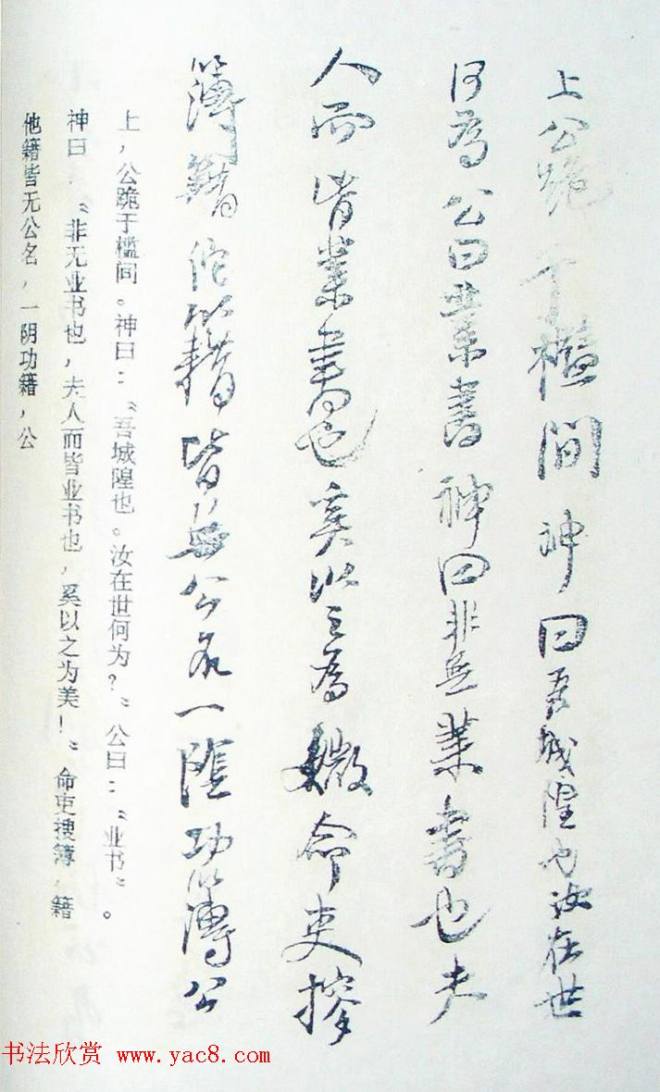 上公跪于槛間神曰吾城隍也汝在世
何為公曰業書神曰非無業書也夫
人而皆業書也奚以之為媺命吏搜
簿籍佗籍皆無公名一陰功簿公
上，公跪于槛间。神曰：“吾城隍也。汝在世何为？”公曰：“业书”。
神曰：“非无业书也，夫人而皆业书也，奚以之为美！”命吏搜簿，籍
他籍皆无公名，一阴功籍，公
书法欣赏 www.yac8.com